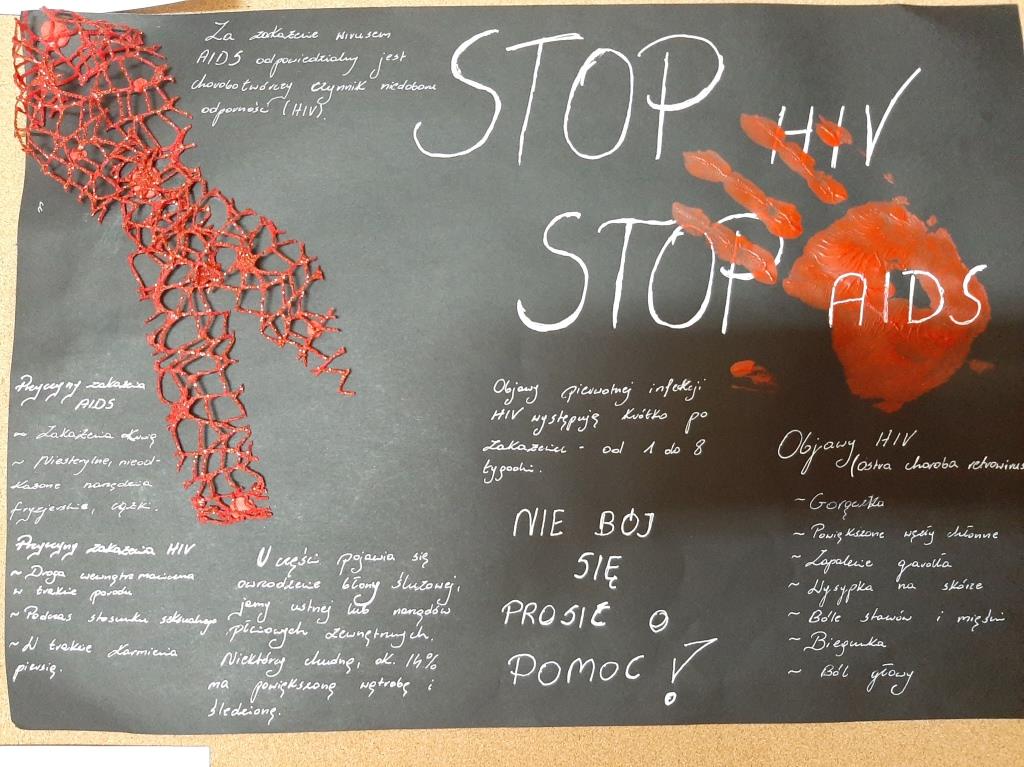 Za zakażenie wirusem
AIDS odpowiedzialny jest
chorobotwórczy czynnik niedoboru
odporność (HIV).
STOP HIV
STOP AIDS
Przyczyny zakażenia
AIDS
~ Zakażenia krwią
~ Niesterylne, nieod-
każone narzędzia
fryzjerskie, igły.
Przyczyny zakażenia HIV
~ Droga wewnątrzmaciczna
w trakcie porodu
~ Podczas stosunku seksualnego
~ W trakcie karmienia
piersią.
U części pojawia się
owrzodzenie błony śluzowej,
jamy ustnej lub narządów
płciowych zewnętrznych.
Niektórzy chudną, ok. 14%
ma powiększoną wątrobę i
śledzionę.
Objawy pierwotnej infekcji
HIV występują krótko po
zakażeniu - od 1 do 8
tygodni.
NIE BÓJ
SIĘ
PROSIĆ O
POMOC!
Objawy HIV
(ostra choroba retrowirus
~ Gorączka
~ Powiększone węzły chłonne
~ Zapalenie gardła
~ Wysypka na skórze
~ Bóle stawów i mięśni
~ Biegunka
~ Ból głowy